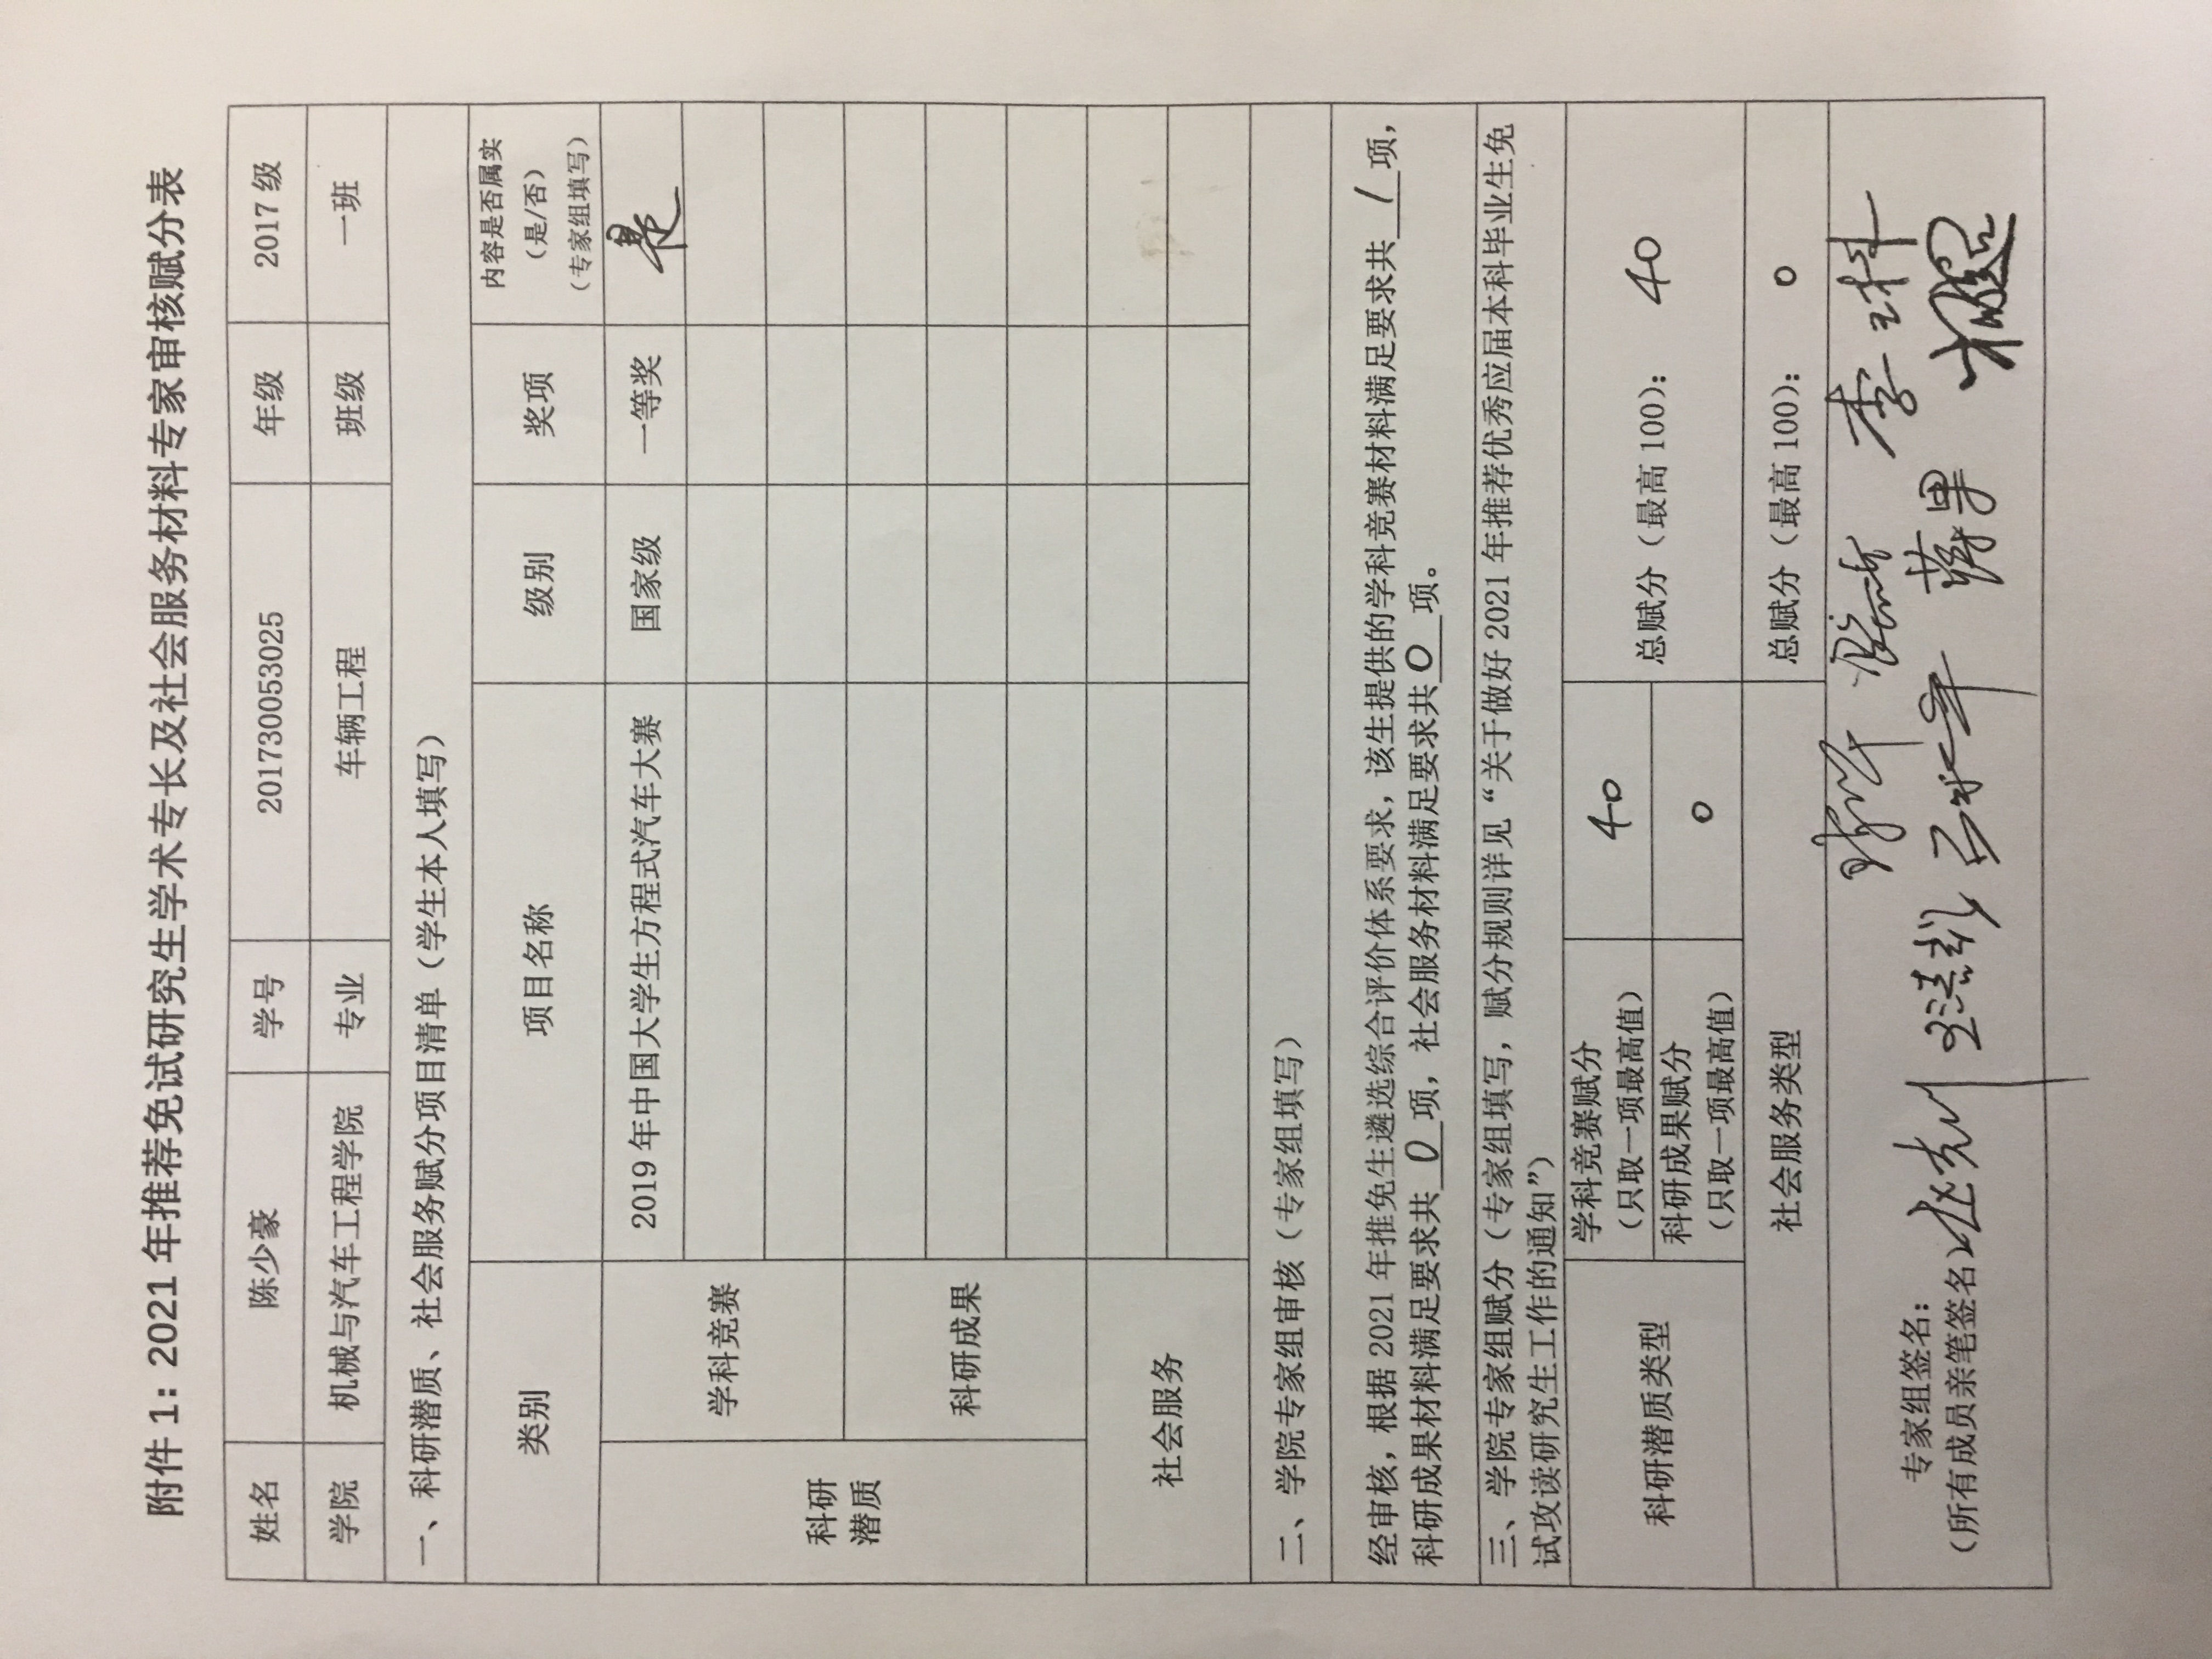 附件 1：2021 年推荐免试研究生学术专长及社会服务材料专家审核赋分表
姓名 陈少豪 学号 201730053025 年级 2017 级
学院 机械与汽车工程学院 专业 车辆工程 班级 一班
一、科研潜质、社会服务赋分项目清单（学生本人填写）
类别 项目名称 级别 奖项 内容是否属实
（是/否）
（专家组填写）
科研
潜质
学科竞赛 2019 年中国大学生方程式汽车大赛 国家级 一等奖 是
科研成果
社会服务
二、学院专家组审核（专家组填写）
经审核，根据 2021 年推免生遴选综合评价体系要求，该生提供的学科竞赛材料满足要求共 1 项，
科研成果材料满足要求共 0 项，社会服务材料满足要求共 0 项。
三、学院专家组赋分（专家组填写，赋分规则详见“关于做好 2021 年推荐优秀应届本科毕业生免
试攻读研究生工作的通知”）
科研潜质类型
学科竞赛赋分
（只取一项最高值） 40
科研成果赋分
（只取一项最高值） 0
总赋分（最高 100）： 40
社会服务类型 总赋分（最高 100）： 0
专家组签名：
（所有成员亲笔签名）